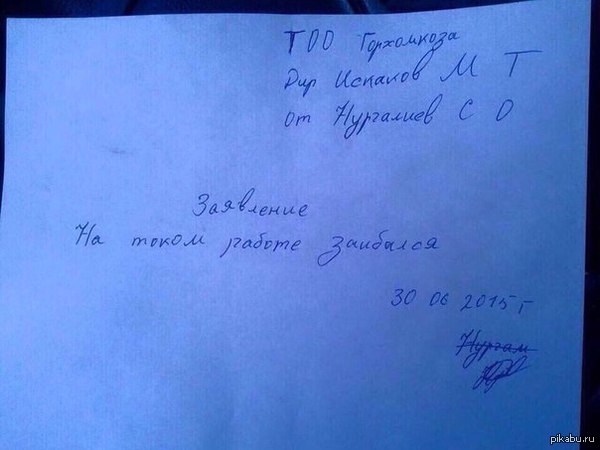 ТОО Горхомкоза
Дир Искаков М Т
от Нургалиев С О
Заявление
На током работе Заибался
30 06 2015 г
Нургам
pikabu.ru